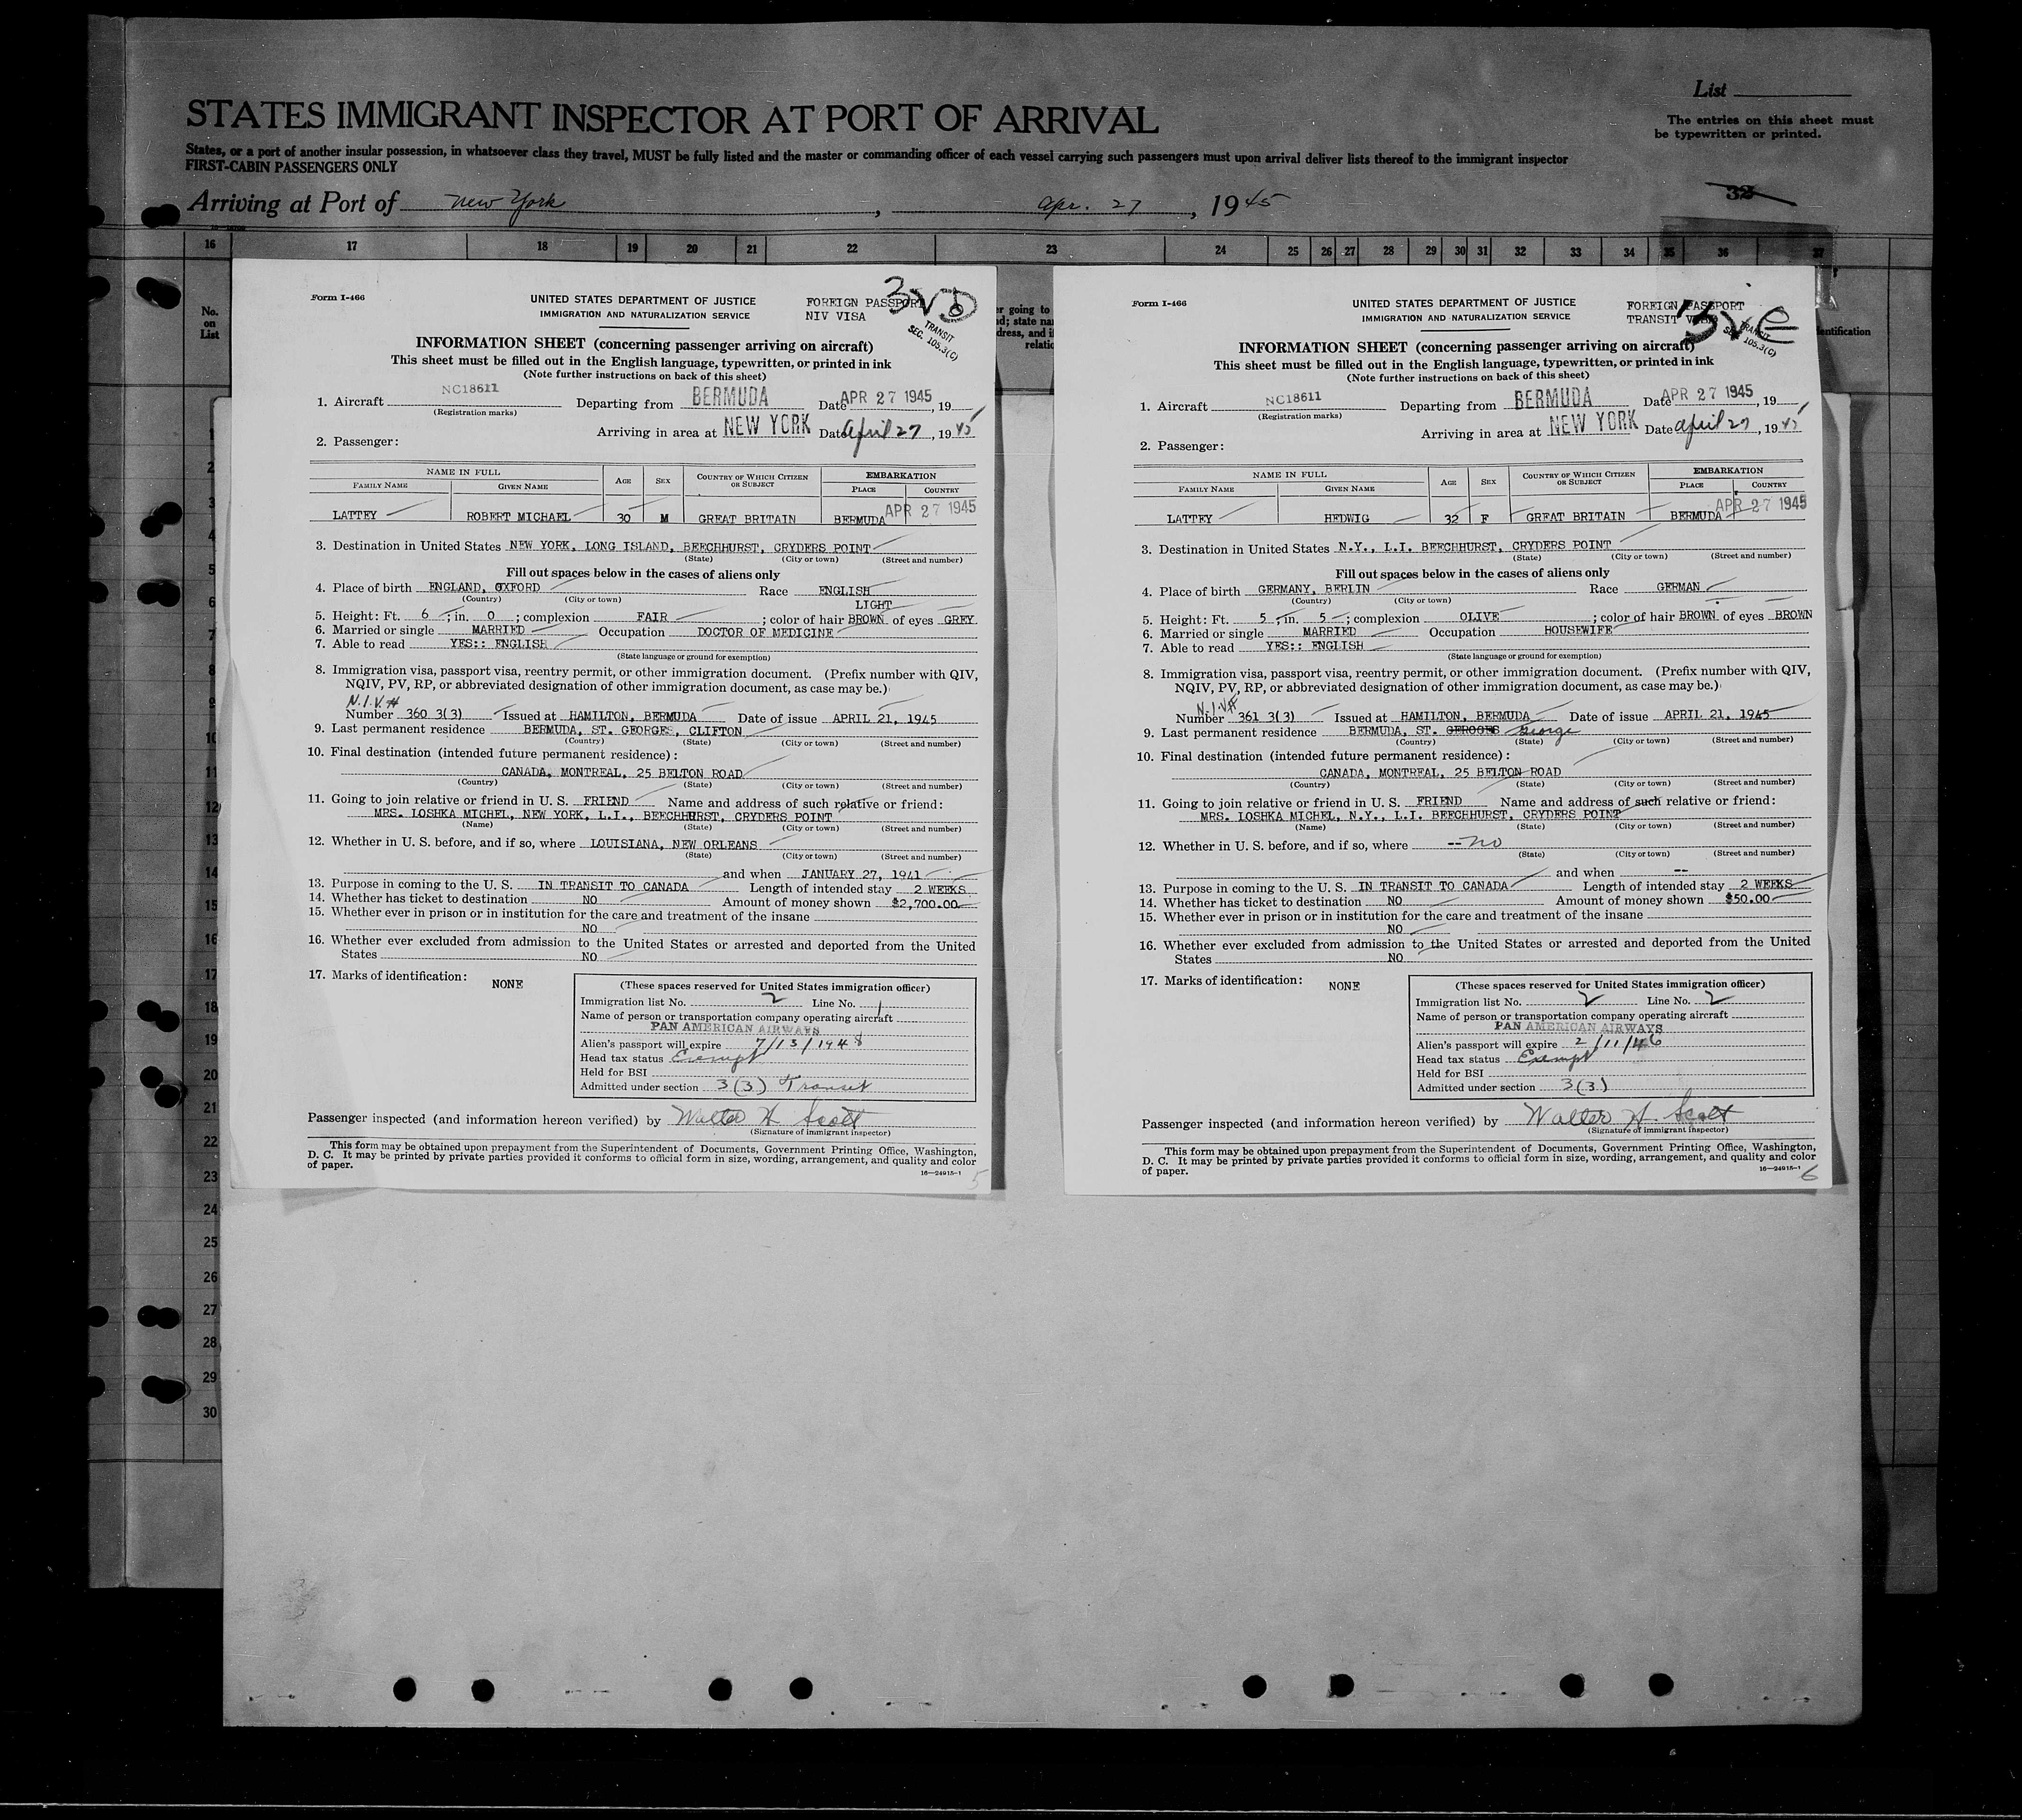 List
STATES IMMIGRANT INSPECTOR AT PORT OF ARRIVAL
The entries on this sheet must
be typewritten or printed.
States, or a port of another insular possession, in whatsoever class they travel, MUST be fully listed and the master or commanding officer of each vessel carrying such passengers must upon arrival deliver lists thereof to the immigrant inspector
FIRST-CABIN PASSENGERS ONLY
32
Arriving at Port of New York, Apr. 27, 1945
16 17 18 19 20 21 22 23 24 25 26 27 28 29 30 31 32 33 34 35 36 37
No.
on
List
Form I-466
UNITED STATES DEPARTMENT OF JUSTICE
IMMIGRATION AND NATURALIZATION SERVICE
FOREIGN PASSPORT
NIV VISA
TRANSIT
SEC. 105.3(C)
INFORMATION SHEET (concerning passenger arriving on aircraft)
This sheet must be filled out in the English language, typewritten, or printed in ink
(Note further instructions on back of this sheet)
1. Aircraft NC18611 Departing from BERMUDA Date APR 27 1945, 19
(Registration marks)
Arriving in area at NEW YORK Date April 27, 1945
2. Passenger:
NAME IN FULL AGE SEX COUNTRY OF WHICH CITIZEN OR SUBJECT EMBARKATION
FAMILY NAME GIVEN NAME PLACE COUNTRY
LATTEY ROBERT MICHAEL 30 M GREAT BRITAIN BERMUDA APR 27 1945
3. Destination in United States NEW YORK, LONG ISLAND, BEECHHURST, CRYDERS POINT
(State) (City or town) (Street and number)
Fill out spaces below in the cases of aliens only
4. Place of birth ENGLAND, OXFORD Race ENGLISH
(Country) (City or town)
LIGHT
5. Height: Ft. 6; in. 0; complexion FAIR; color of hair BROWN of eyes GREY
6. Married or single MARRIED Occupation DOCTOR OF MEDICINE
7. Able to read YES:: ENGLISH
(State language or ground for exemption)
8. Immigration visa, passport visa, reentry permit, or other immigration document. (Prefix number with QIV,
NQIV, PV, RP, or abbreviated designation of other immigration document, as case may be.)
N.I.V.#
Number 360 3(3) Issued at HAMILTON, BERMUDA Date of issue APRIL 21, 1945
9. Last permanent residence BERMUDA, ST. GEORGES, CLIFTON
(Country) (State) (City or town) (Street and number)
10. Final destination (intended future permanent residence):
CANADA, MONTREAL, 25 BELTON ROAD
(Country) (State) (City or town) (Street and number)
11. Going to join relative or friend in U. S. FRIEND Name and address of such relative or friend:
MRS. LOSHKA MICHEL, NEW YORK, L.I., BEECHHURST, CRYDERS POINT
(Name) (State) (City or town) (Street and number)
12. Whether in U. S. before, and if so, where LOUISIANA, NEW ORLEANS
(State) (City or town) (Street and number)
and when JANUARY 27, 1941
13. Purpose in coming to the U. S. IN TRANSIT TO CANADA Length of intended stay 2 WEEKS
14. Whether has ticket to destination NO Amount of money shown $2,700.00
15. Whether ever in prison or in institution for the care and treatment of the insane
NO
16. Whether ever excluded from admission to the United States or arrested and deported from the United
States NO
17. Marks of identification: NONE
(These spaces reserved for United States immigration officer)
Immigration list No. 2 Line No. 1
Name of person or transportation company operating aircraft
PAN AMERICAN AIRWAYS
Alien's passport will expire 7/13/1948
Head tax status Exempt
Held for BSI
Admitted under section 3(3) Transit
Passenger inspected (and information hereon verified) by Walter H. Scott
(Signature of immigrant inspector)
This form may be obtained upon prepayment from the Superintendent of Documents, Government Printing Office, Washington,
D. C. It may be printed by private parties provided it conforms to official form in size, wording, arrangement, and quality and color
of paper.
16—24915-1
5
Form I-466
UNITED STATES DEPARTMENT OF JUSTICE
IMMIGRATION AND NATURALIZATION SERVICE
FOREIGN PASSPORT
TRANSIT
TRANSIT
SEC. 105.3(C)
INFORMATION SHEET (concerning passenger arriving on aircraft)
This sheet must be filled out in the English language, typewritten, or printed in ink
(Note further instructions on back of this sheet)
1. Aircraft NC18611 Departing from BERMUDA Date APR 27 1945, 19
(Registration marks)
Arriving in area at NEW YORK Date April 27, 1945
2. Passenger:
NAME IN FULL AGE SEX COUNTRY OF WHICH CITIZEN OR SUBJECT EMBARKATION
FAMILY NAME GIVEN NAME PLACE COUNTRY
LATTEY HEDWIG 32 F GREAT BRITAIN BERMUDA APR 27 1945
3. Destination in United States N.Y., L.I. BEECHHURST, CRYDERS POINT
(State) (City or town) (Street and number)
Fill out spaces below in the cases of aliens only
4. Place of birth GERMANY, BERLIN Race GERMAN
(Country) (City or town)
5. Height: Ft. 5; in. 5; complexion OLIVE; color of hair BROWN of eyes BROWN
6. Married or single MARRIED Occupation HOUSEWIFE
7. Able to read YES:: ENGLISH
(State language or ground for exemption)
8. Immigration visa, passport visa, reentry permit, or other immigration document. (Prefix number with QIV,
NQIV, PV, RP, or abbreviated designation of other immigration document, as case may be.)
N.I.V.#
Number 361 3(3) Issued at HAMILTON, BERMUDA Date of issue APRIL 21, 1945
9. Last permanent residence BERMUDA, ST. George
(Country) (State) (City or town) (Street and number)
10. Final destination (intended future permanent residence):
CANADA, MONTREAL, 25 BELTON ROAD
(Country) (State) (City or town) (Street and number)
11. Going to join relative or friend in U. S. FRIEND Name and address of such relative or friend:
MRS. LOSHKA MICHEL, N.Y., L.I. BEECHHURST, CRYDERS POINT
(Name) (State) (City or town) (Street and number)
12. Whether in U. S. before, and if so, where -- no
(State) (City or town) (Street and number)
and when --
13. Purpose in coming to the U. S. IN TRANSIT TO CANADA Length of intended stay 2 WEEKS
14. Whether has ticket to destination NO Amount of money shown $50.00
15. Whether ever in prison or in institution for the care and treatment of the insane
NO
16. Whether ever excluded from admission to the United States or arrested and deported from the United
States NO
17. Marks of identification: NONE
(These spaces reserved for United States immigration officer)
Immigration list No. 2 Line No. 2
Name of person or transportation company operating aircraft
PAN AMERICAN AIRWAYS
Alien's passport will expire 2/11/46
Head tax status Exempt
Held for BSI
Admitted under section 3(3)
Passenger inspected (and information hereon verified) by Walter H. Scott
(Signature of immigrant inspector)
This form may be obtained upon prepayment from the Superintendent of Documents, Government Printing Office, Washington,
D. C. It may be printed by private parties provided it conforms to official form in size, wording, arrangement, and quality and color
of paper.
16—24915-1
6
2
3
4
5
6
7
8
9
10
11
12
13
14
15
16
17
18
19
20
21
22
23
24
25
26
27
28
29
30